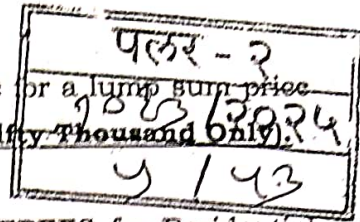 पलर - २
for a lump sum price
/२०२५
ifty Thousand Only).
५ / ५३